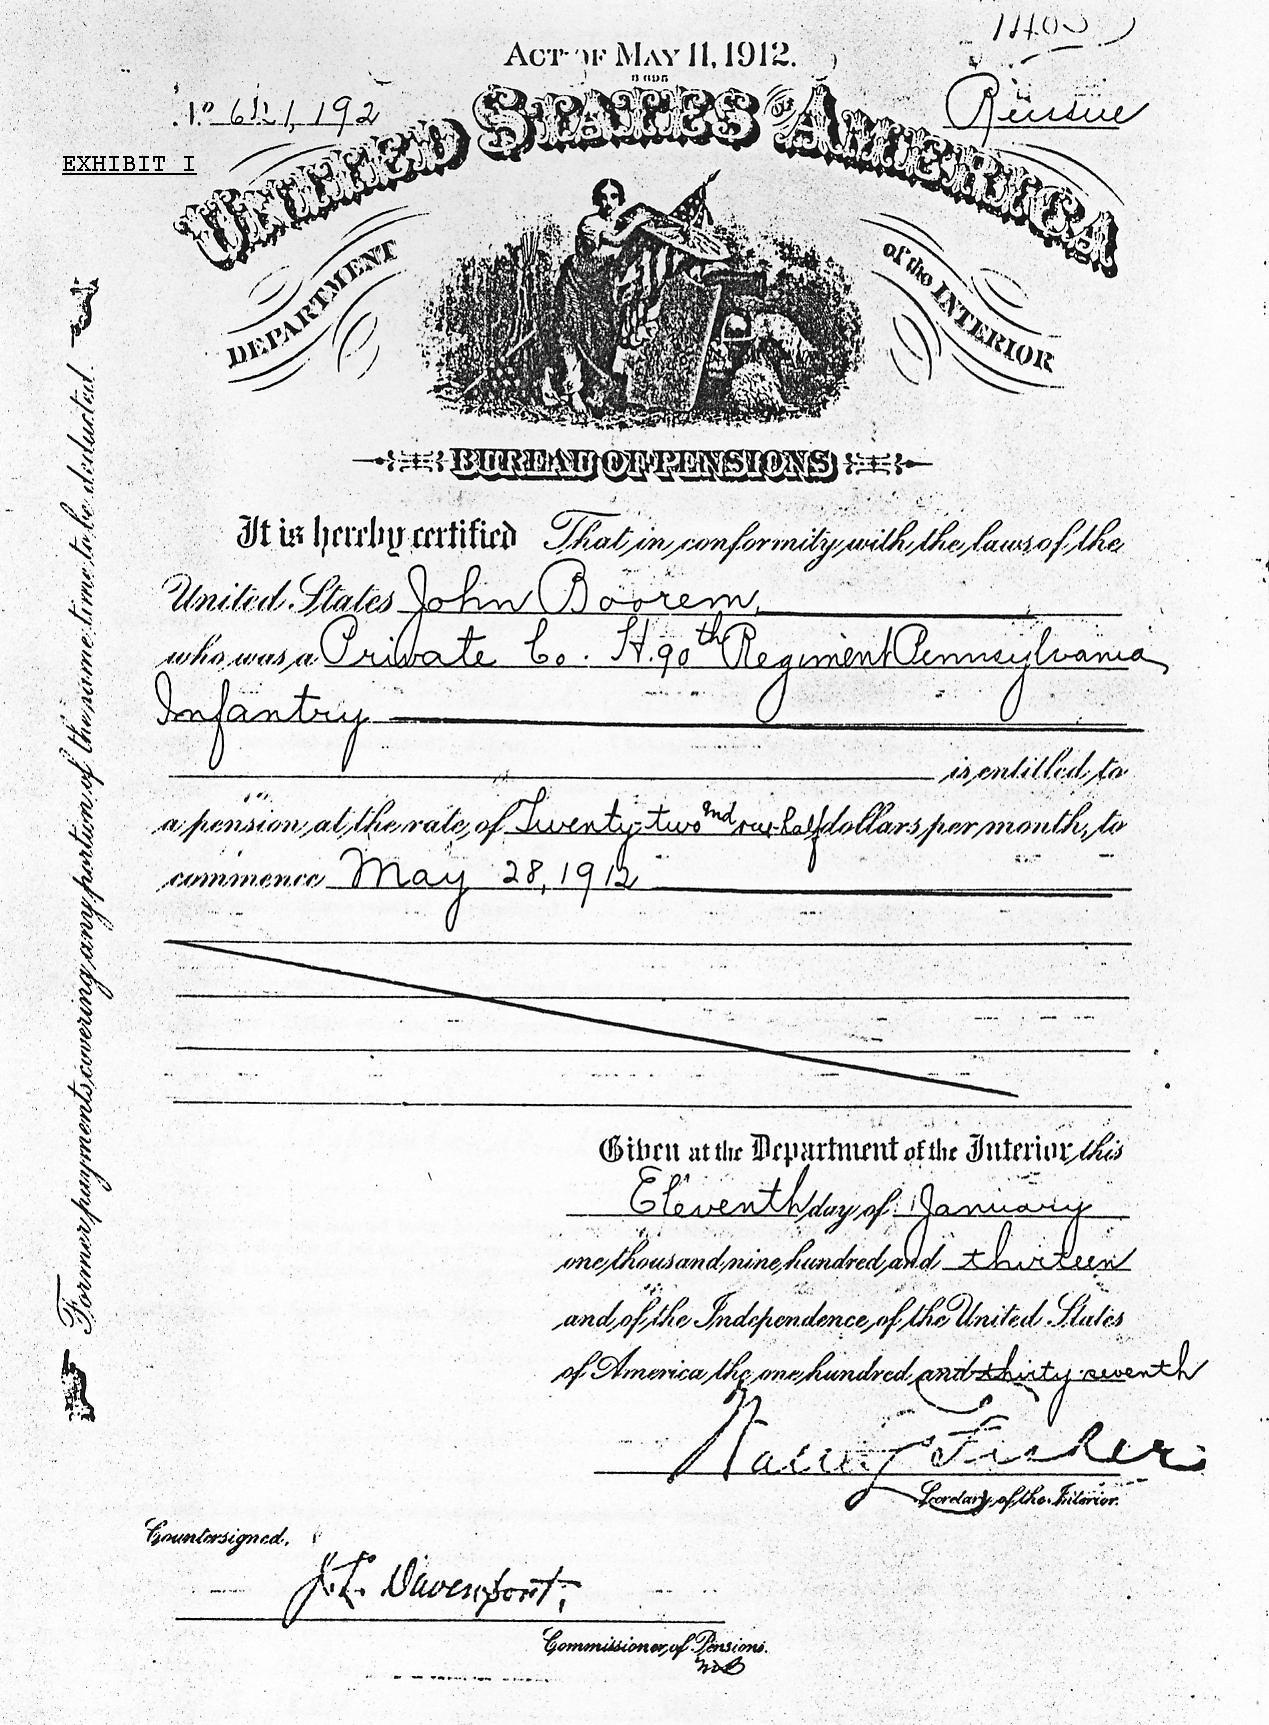 ACT OF MAY 11, 1912.
Reissue
EXHIBIT I
UNITED STATES OF AMERICA
DEPARTMENT of the INTERIOR
BUREAU OF PENSIONS
It is hereby certified That in conformity with the laws of the
United States John Boorem,
who was a Private Co. H. 90th Regiment Pennsylvania
Infantry
is entitled to
a pension at the rate of Twenty-two and one-half dollars per month, to
commence May 28, 1912
Given at the Department of the Interior this
Eleventh day of January
one thousand nine hundred and thirteen
and of the Independence of the United States
of America the one hundred and thirty-seventh
Secretary of the Interior.
Countersigned,
J. L. Davenport,
Commissioner of Pensions.
Former payments covering any portion of the same time to be deducted.